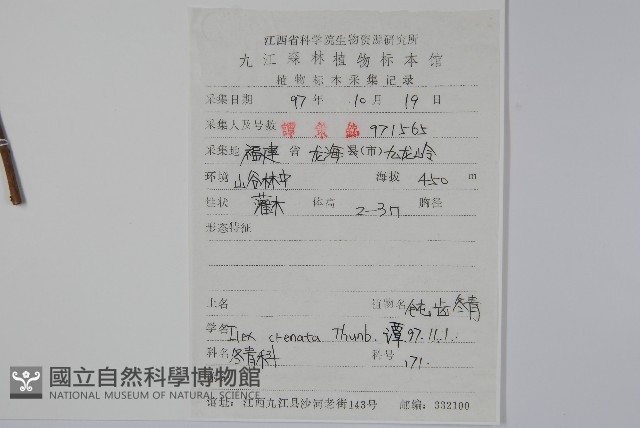 江西省科学院生物资源研究所
九江森林植物标本馆
植物标本采集记录
采集日期 97 年 10 月 19 日
采集人及号数 譚策銘 971565
采集地 福建 省 龙海 县(市) 九龙岭
环境 山谷林中 海拔 450 m
性状 灌木 体高 2—3m 胸径
形态特征
土名 植物名 钝齿冬青
学名 Ilex crenata Thunb. 谭 97.11.1.
科名 冬青科 科号 171.
國立自然科學博物館
NATIONAL MUSEUM OF NATURAL SCIENCE
地址：江西九江县沙河老街143号 邮编：332100